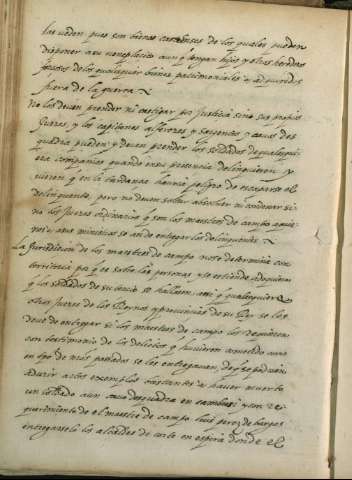 suceden pues son bienes castrenses de los quales pueden
disponer a su veneplacito aunq tengan hijos y otros herederos
forzosos de los quales quier bienes patrimoniales o adquiridos
fuera de la guerra
No los deuen prender ni castigar por Justicia sino sus propios
Jueces, y los capitanes alferezes y sargentos y cauos de es
quadra pueden y deuen prender los soldados de qualesqui
era compañias quando en su presencia delinquieren y
vieren q en la tardança hauria peligro de escaparse el
delinquente, pero no deuen soltar absoluer ni condenar si
no los Jueces ordinarios q son los maestros de campo a quie
nes o a sus ministros se an de entregar los delinquentes
La jurisdicion de los maestres de campo no se determina con
territorio pa q es sobre las personas y se estiende a do quiera
q los soldados de su tercio se hallaren, ansi q qualesquiera
otros Jueces de los Reynos y prouincias de su Rey se los
deuen de entregar si los maestres de campo los requieren
con testimonio de los delitos q huuieren cometido
en tpo de mis pasados se les entregauan, de q se podrian
aduzir artos exemplos bastantes a hauer muerto
un soldado a un cauo de esquadra en y con re
querimiento de el maestre de campo luis perez de bargas
entregarselo los alcaldes de corte en españa donde el